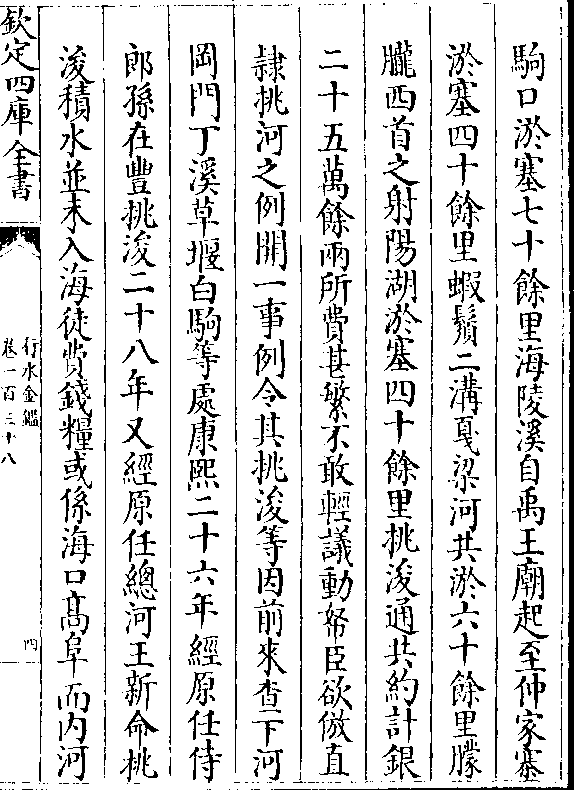 駒口淤塞七十餘里海陵溪自禹王廟起至仲家寨
淤塞四十餘里蝦鬚二溝戛梁河共淤六十餘里朦
朧西首之射陽湖淤塞四十餘里挑浚通共約計銀
二十五萬餘兩所費甚繁不敢輕議動帑臣欲倣直
隷挑河之例開一事例令其挑浚等因前來查下河
岡門丁溪草堰白駒等處康熙二十六年經原任侍
郎孫在豐挑浚二十八年又經原任總河王新命挑
浚積水並未入海徒費錢糧或係海口髙阜而内河
欽定四庫全書
行水金鑑
卷一百三十八
四